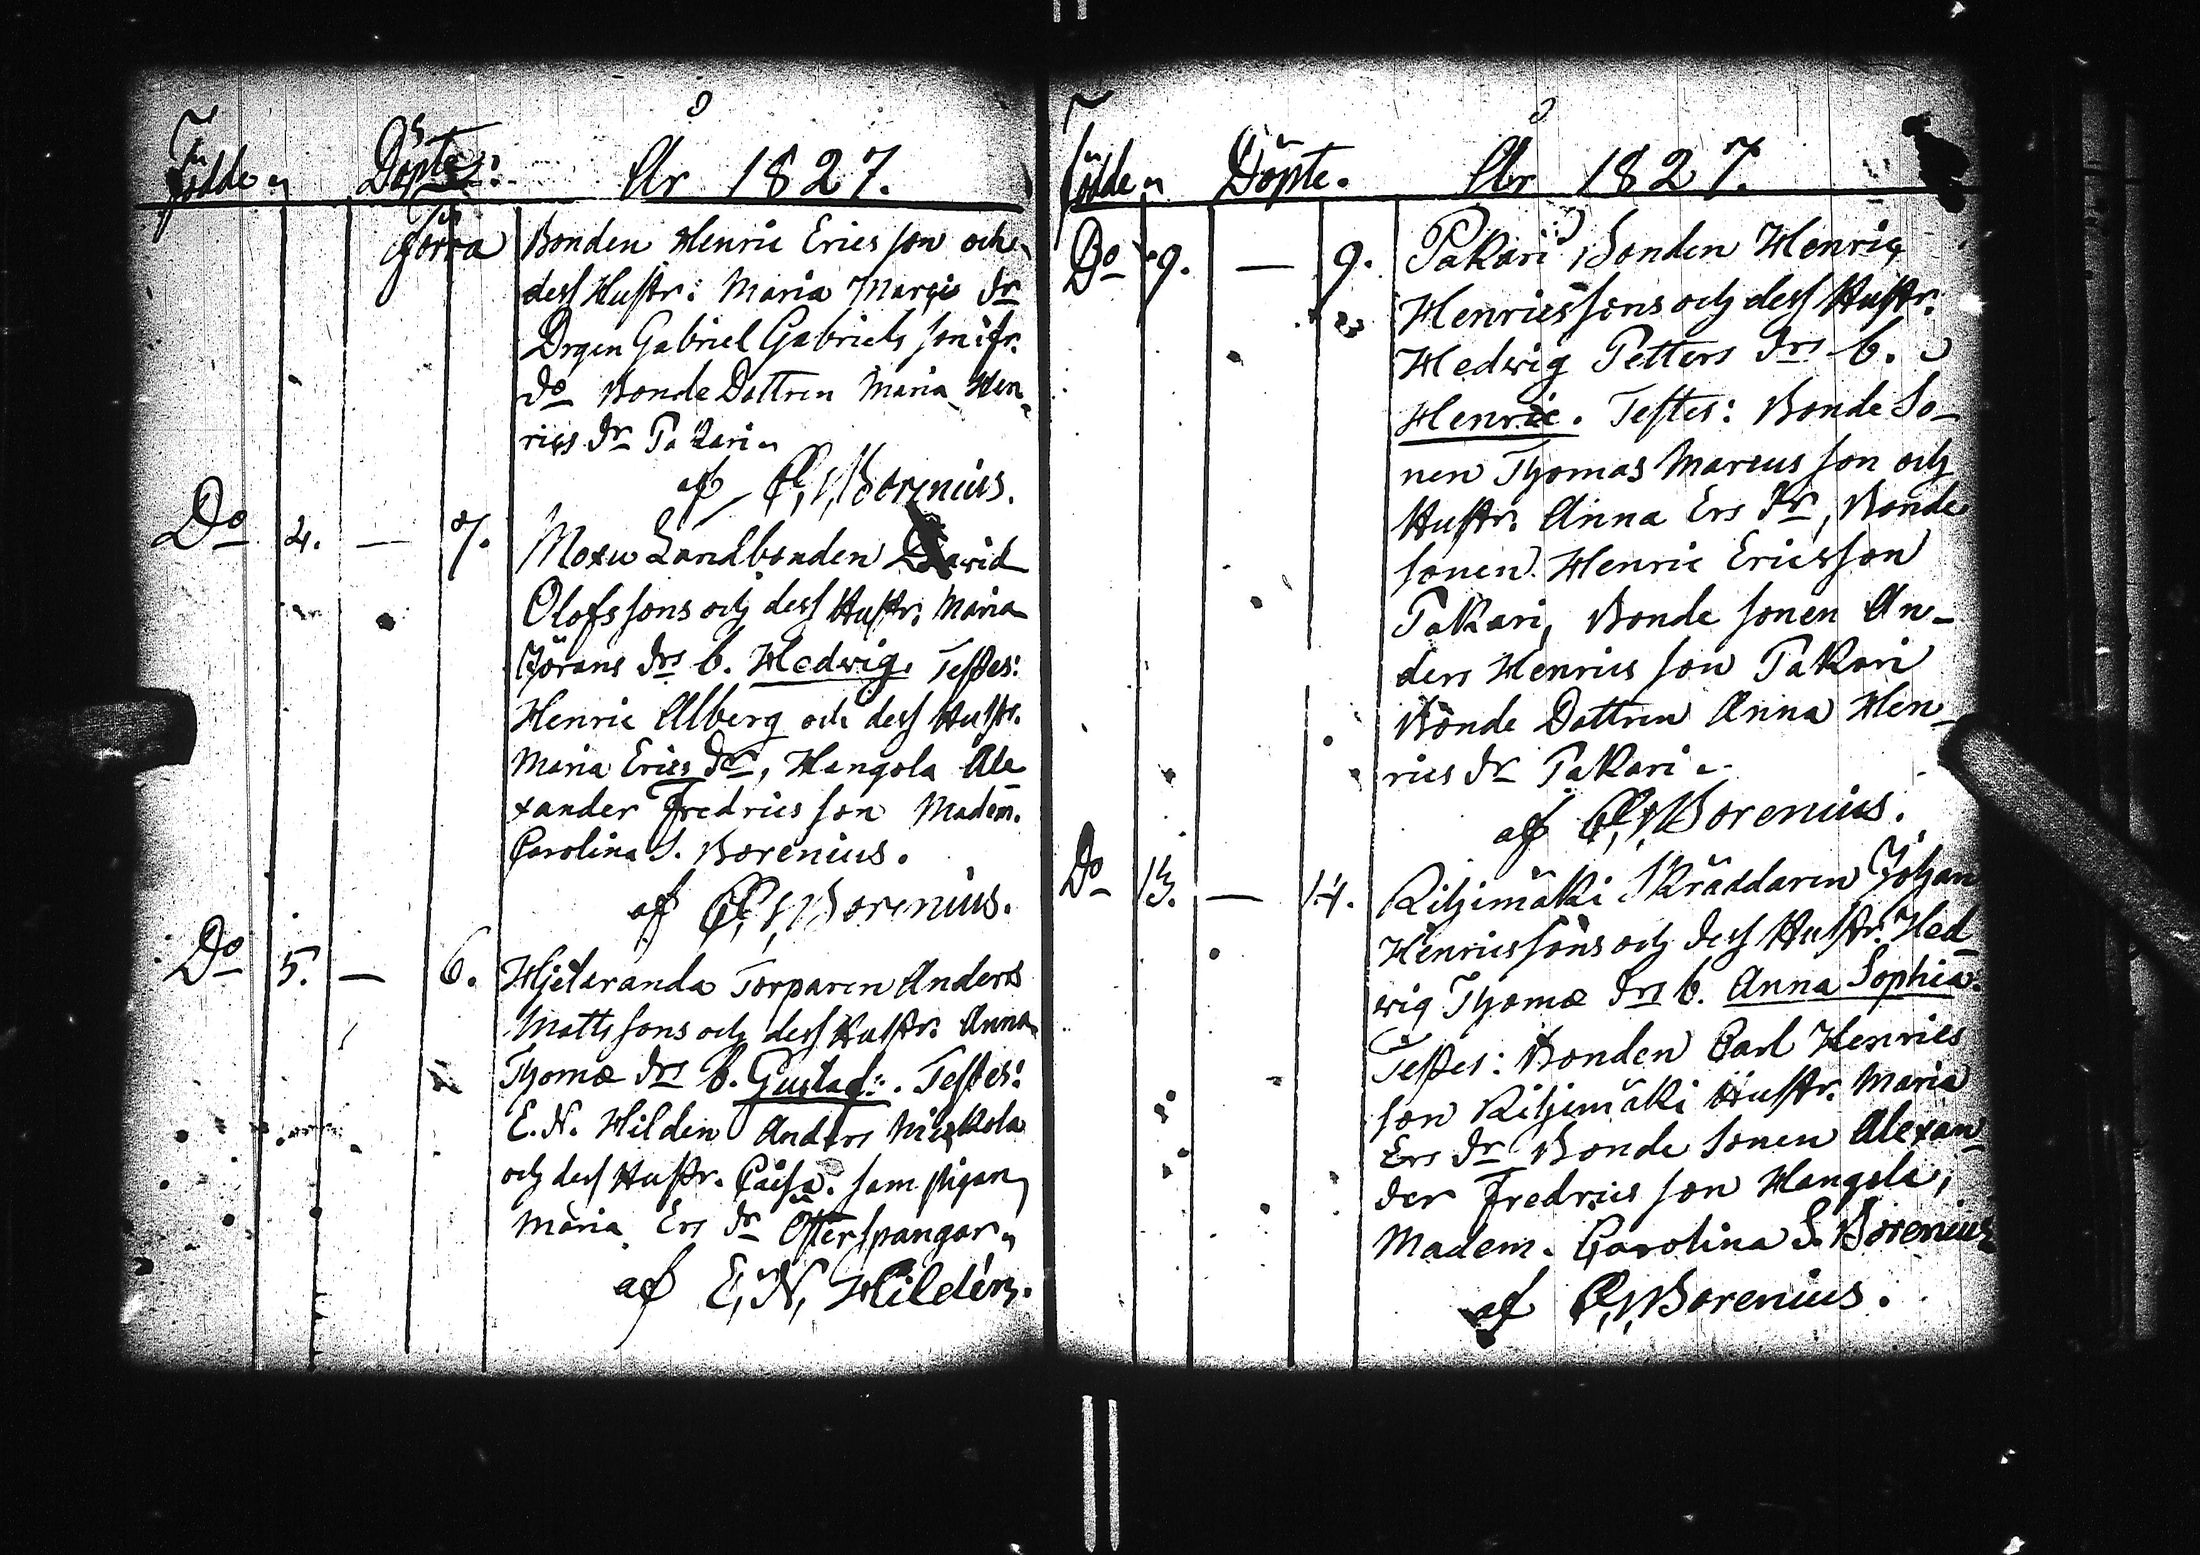 Födde
Döpte:
År 1827.
Förra
Bonden Henric Ericsson och
dess Hustr: Maria Marci dr
Drgen Gabriel Gabriels son ifr.
do Bonde Dottren Maria Hen-
rics dr Pakari
af C. V. Borenius.
Do 4. — 7.
Moxu Landbonden David
Olofssons och dess Hustr. Maria
Jörans drs b. Hedwig. Testes:
Henric Alberg och dess Hustr.
Maria Erics dr, Hangola Ale
xander Fredricsson Madem.
Carolina S. Borenius.
af C. V. Borenius.
Do 5. — 6.
Hjetaranda Torparen Anders
Mattssons och dess Hustr. Anna
Thomæ drs b. Gustaf. Testes:
E. N. Hilden Anders
och dess Hustr. Caisa. samt Pigan
Maria Ers dr Österspangar
af E. N. Hildén.
Födde
Döpte.
År 1827.
Do 9. — 9.
Pakari Bonden Henric
Henricssons och dess Hustr.
Hedwig Petters drs b.
Henric. Testes: Bonde So-
nen Thomas Marcusson och
Hustr. Anna Ers dr, Bonde
sonen Henric Ericsson
Pakari, Bonde sonen An-
ders Henricsson Pakari
Bonde Dottren Anna Hen-
rics dr Pakari
af C. V. Borenius.
Do 13. — 14.
Rihimäki Skräddaren Johan
Henricssons och dess Hustr. Hed
wig Thomæ drs b. Anna Sophia.
Testes: Bonden Carl Henrics
son Rihimäki Hustr. Maria
Ers dr Bonde Sonen Alexan
der Fredricsson Hangola,
Madem. Carolina S. Borenius
af C. V. Borenius.